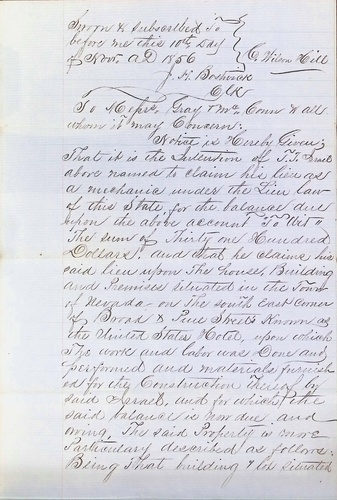 Sworn & Subscribed To
before me this 10th Day
of Novr. AD 1856
C Wilson Hill
J. H. Bostwick
Clk
To Messrs. Gray & Mc Conn & all
whom it may Concern:
Notice is Hereby Given;
That it is the Intention of T. J. Israel
above named to claim his lien as
a mechanic under the Lien law
of this State for the balance due
upon the above account To Wit"
The sum of Thirty one Hundred
Dollars! and that he claims his
said lien upon The house, Building
and Premises situated in the Town
of Nevada - on The south East Corner
of Broad & Pine Streets Known as
the United States Hotel, upon which
The work and labor was Done and
performed and materials furnish
ed for the Construction Thereof by
said Israel, and for which the
said balance is now due and
owing. The said Property is more
Particulary described as follows:
Being That building & lot situated